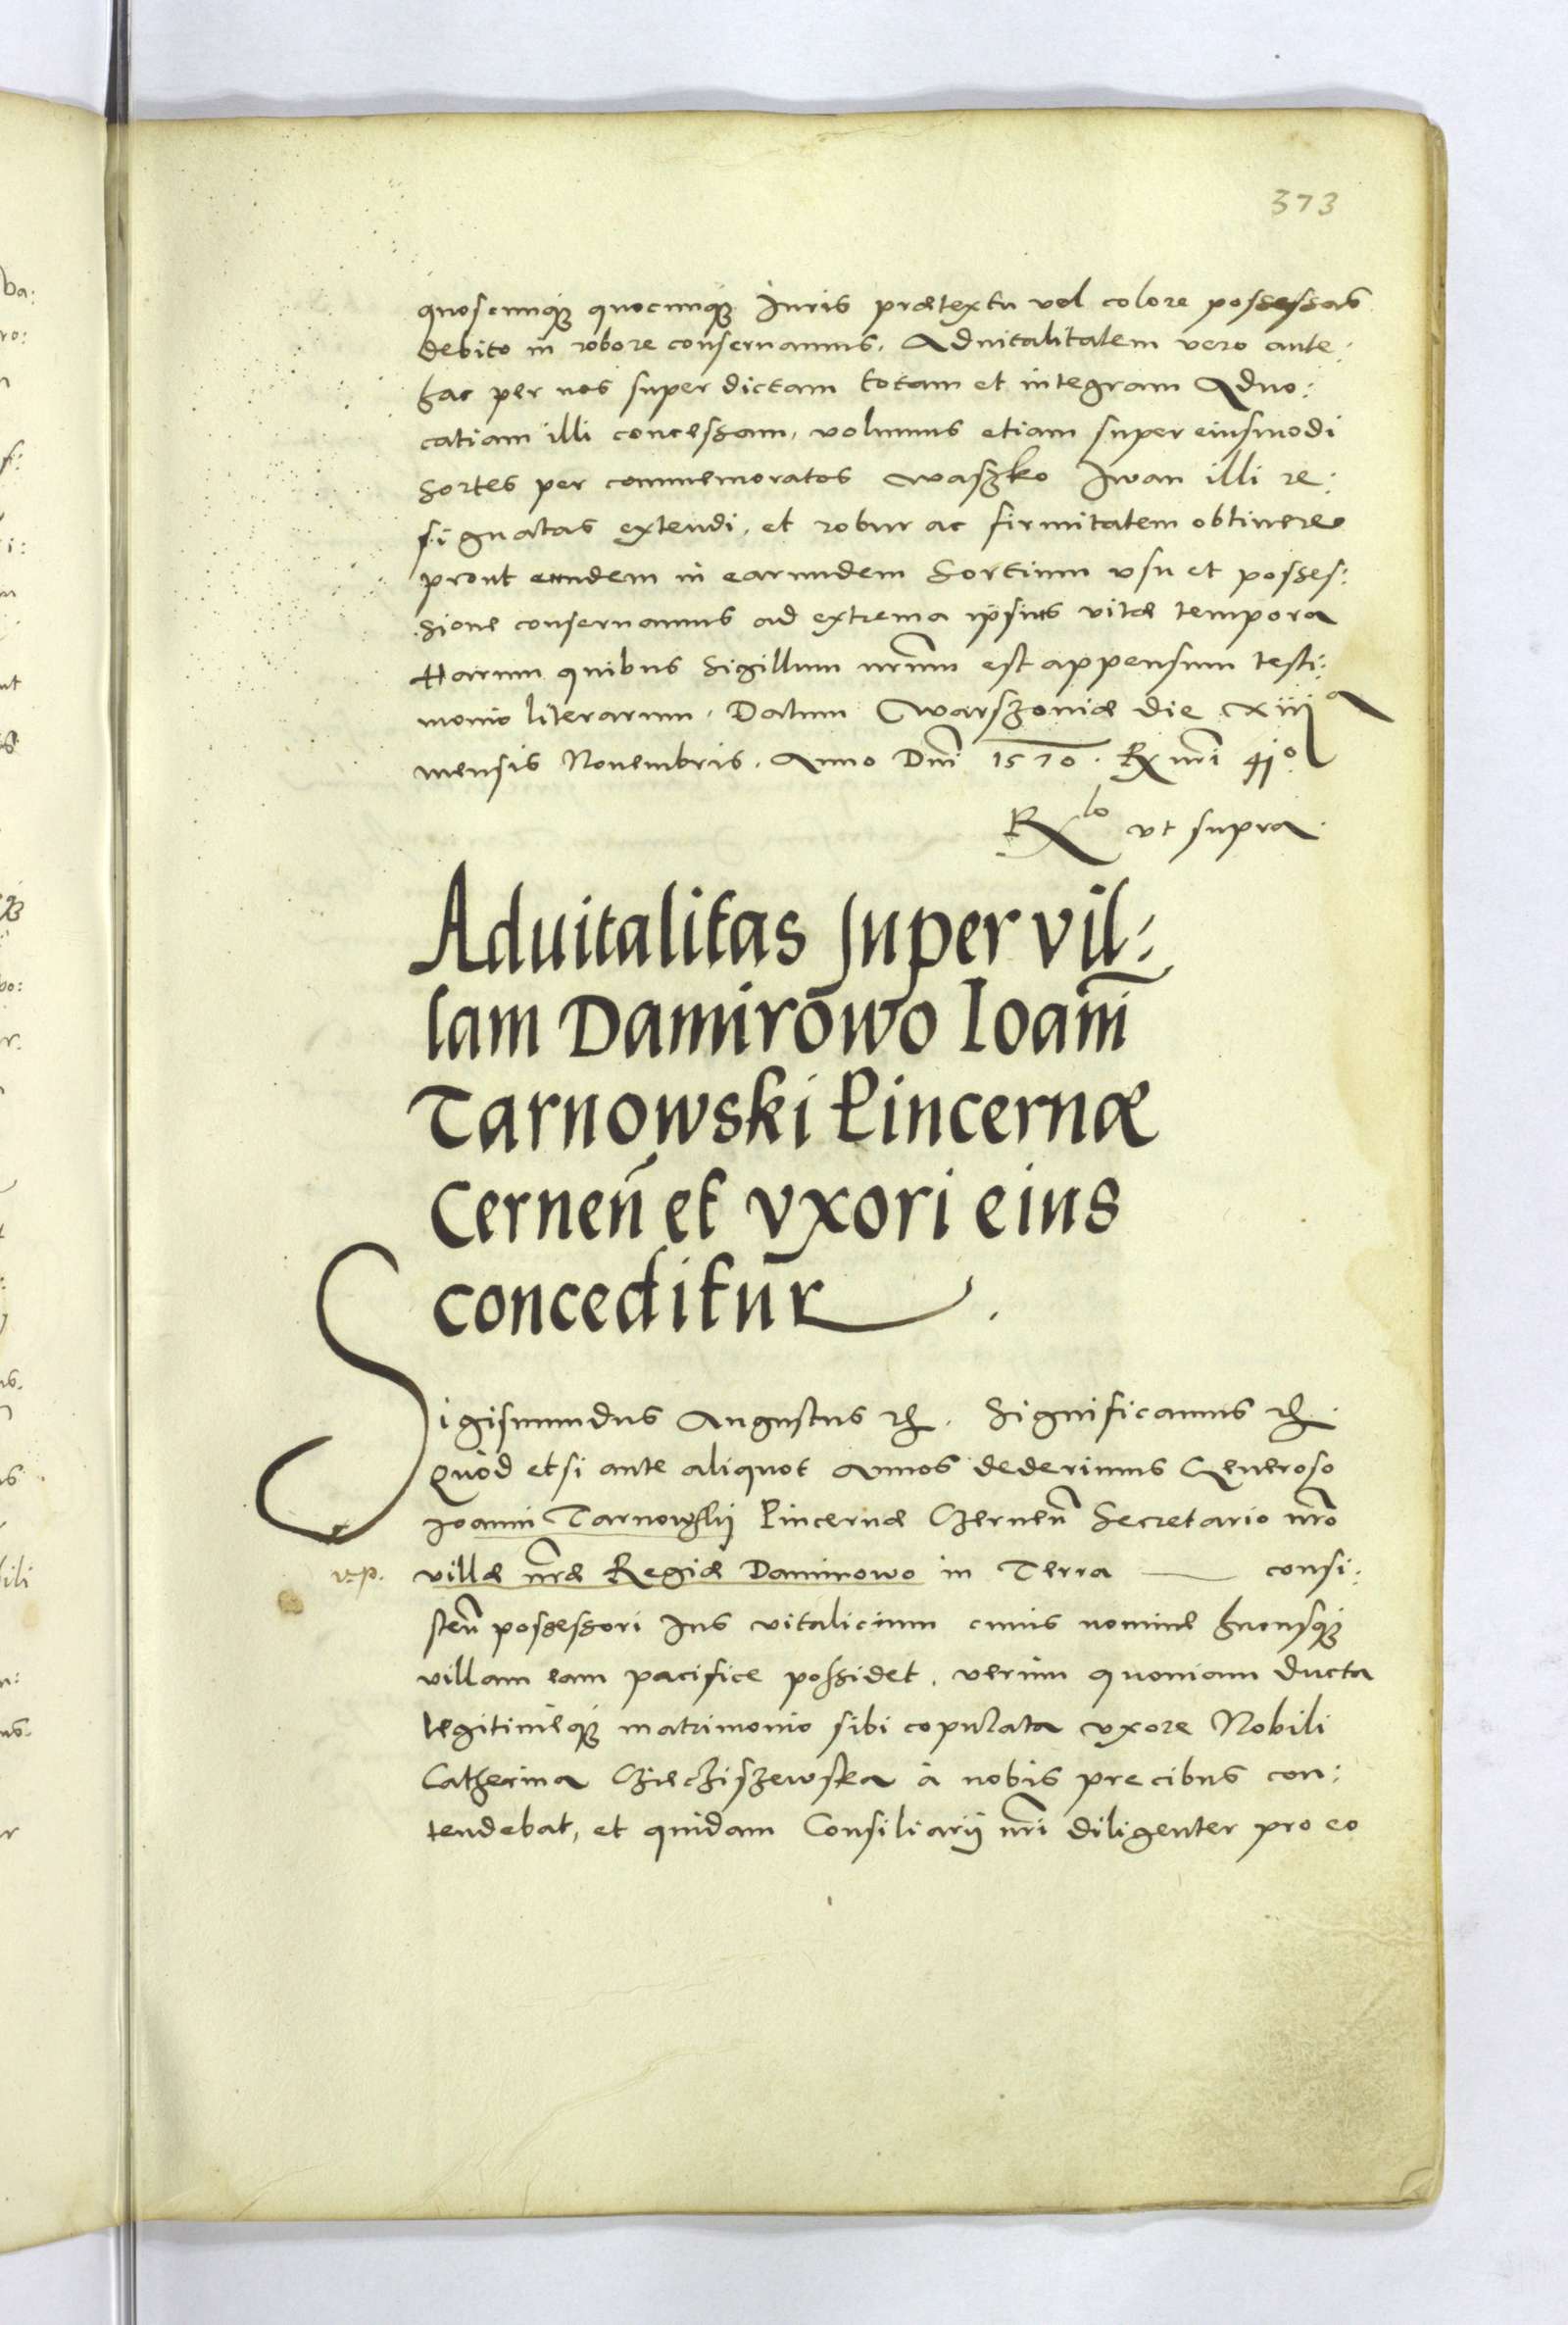 373
quoscunq̃ quocunq̃ Iuris prætextu vel colore possessas
debito in robore conseruamus. Aduitalitatem vero ante:
hac per nos super dictam totam et integram Aduo:
catiam illi concessam, volumus etiam super eiusmodi
sortes per commemoratos waszko Iwan illi re:
signatas extendi, et robur ac firmitatem obtinere
prout eundem in earundem Sortium vsu et posses:
sione conseruamus ad extrema ipsius vitæ tempora
Harum quibus Sigillum nr̃um est appensum testi:
monio literarum. Datum Warszouiæ die XIIIa
mensis Nouembris. Anno Dñi 1570. Rx nr̃i 41o
Rxlo vt supra.
Aduitalitas super vil:
lam Damirowo Ioañi
Tarnowski Pincernæ
Cerneñ et vxori eius
conceditur.
Sigismundus Augustus etc. Significamus etc.
Quòd etsi ante aliquot Annos dederimus Generoso
Joanni Tarnowskij Pincernæ Czerneñ Secretario nr̃o
v. p. villæ nr̃æ Regiæ Daminowo in Terra — consi:
steñ possessori Ius vitalicium cuius nomine hucusq̃
villam eam pacifice possidet. verum quoniam ducta
legitimeq̃ matrimonio sibi copulata vxore Nobili
Catherina Cziecziszewska à nobis precibus con:
tendebat, et quidam Consiliarij nr̃i diligenter pro eo